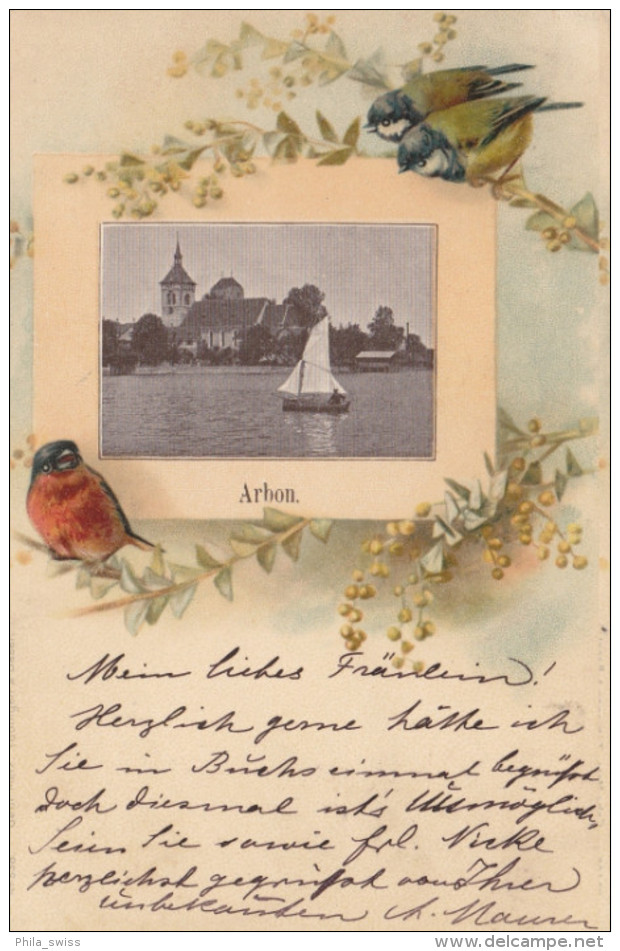 Arbon.
Mein liebes Fräulein!
Herzlich gerne hätte ich
Sie in Buchs einmal begrüßt
doch diesmal ist's Unmöglich,
Seien Sie sowie Frl. Nicke
herzlichst gegrüßt von Ihrer
unbekannten A. Maurer
Phila_swiss
www.delcampe.net